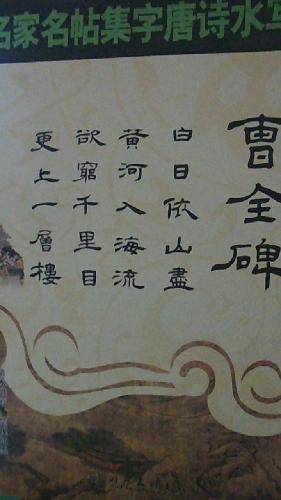 名家名帖集字唐诗水写
曹全碑
白日依山盡
黄河入海流
欲窮千里目
更上一層樓